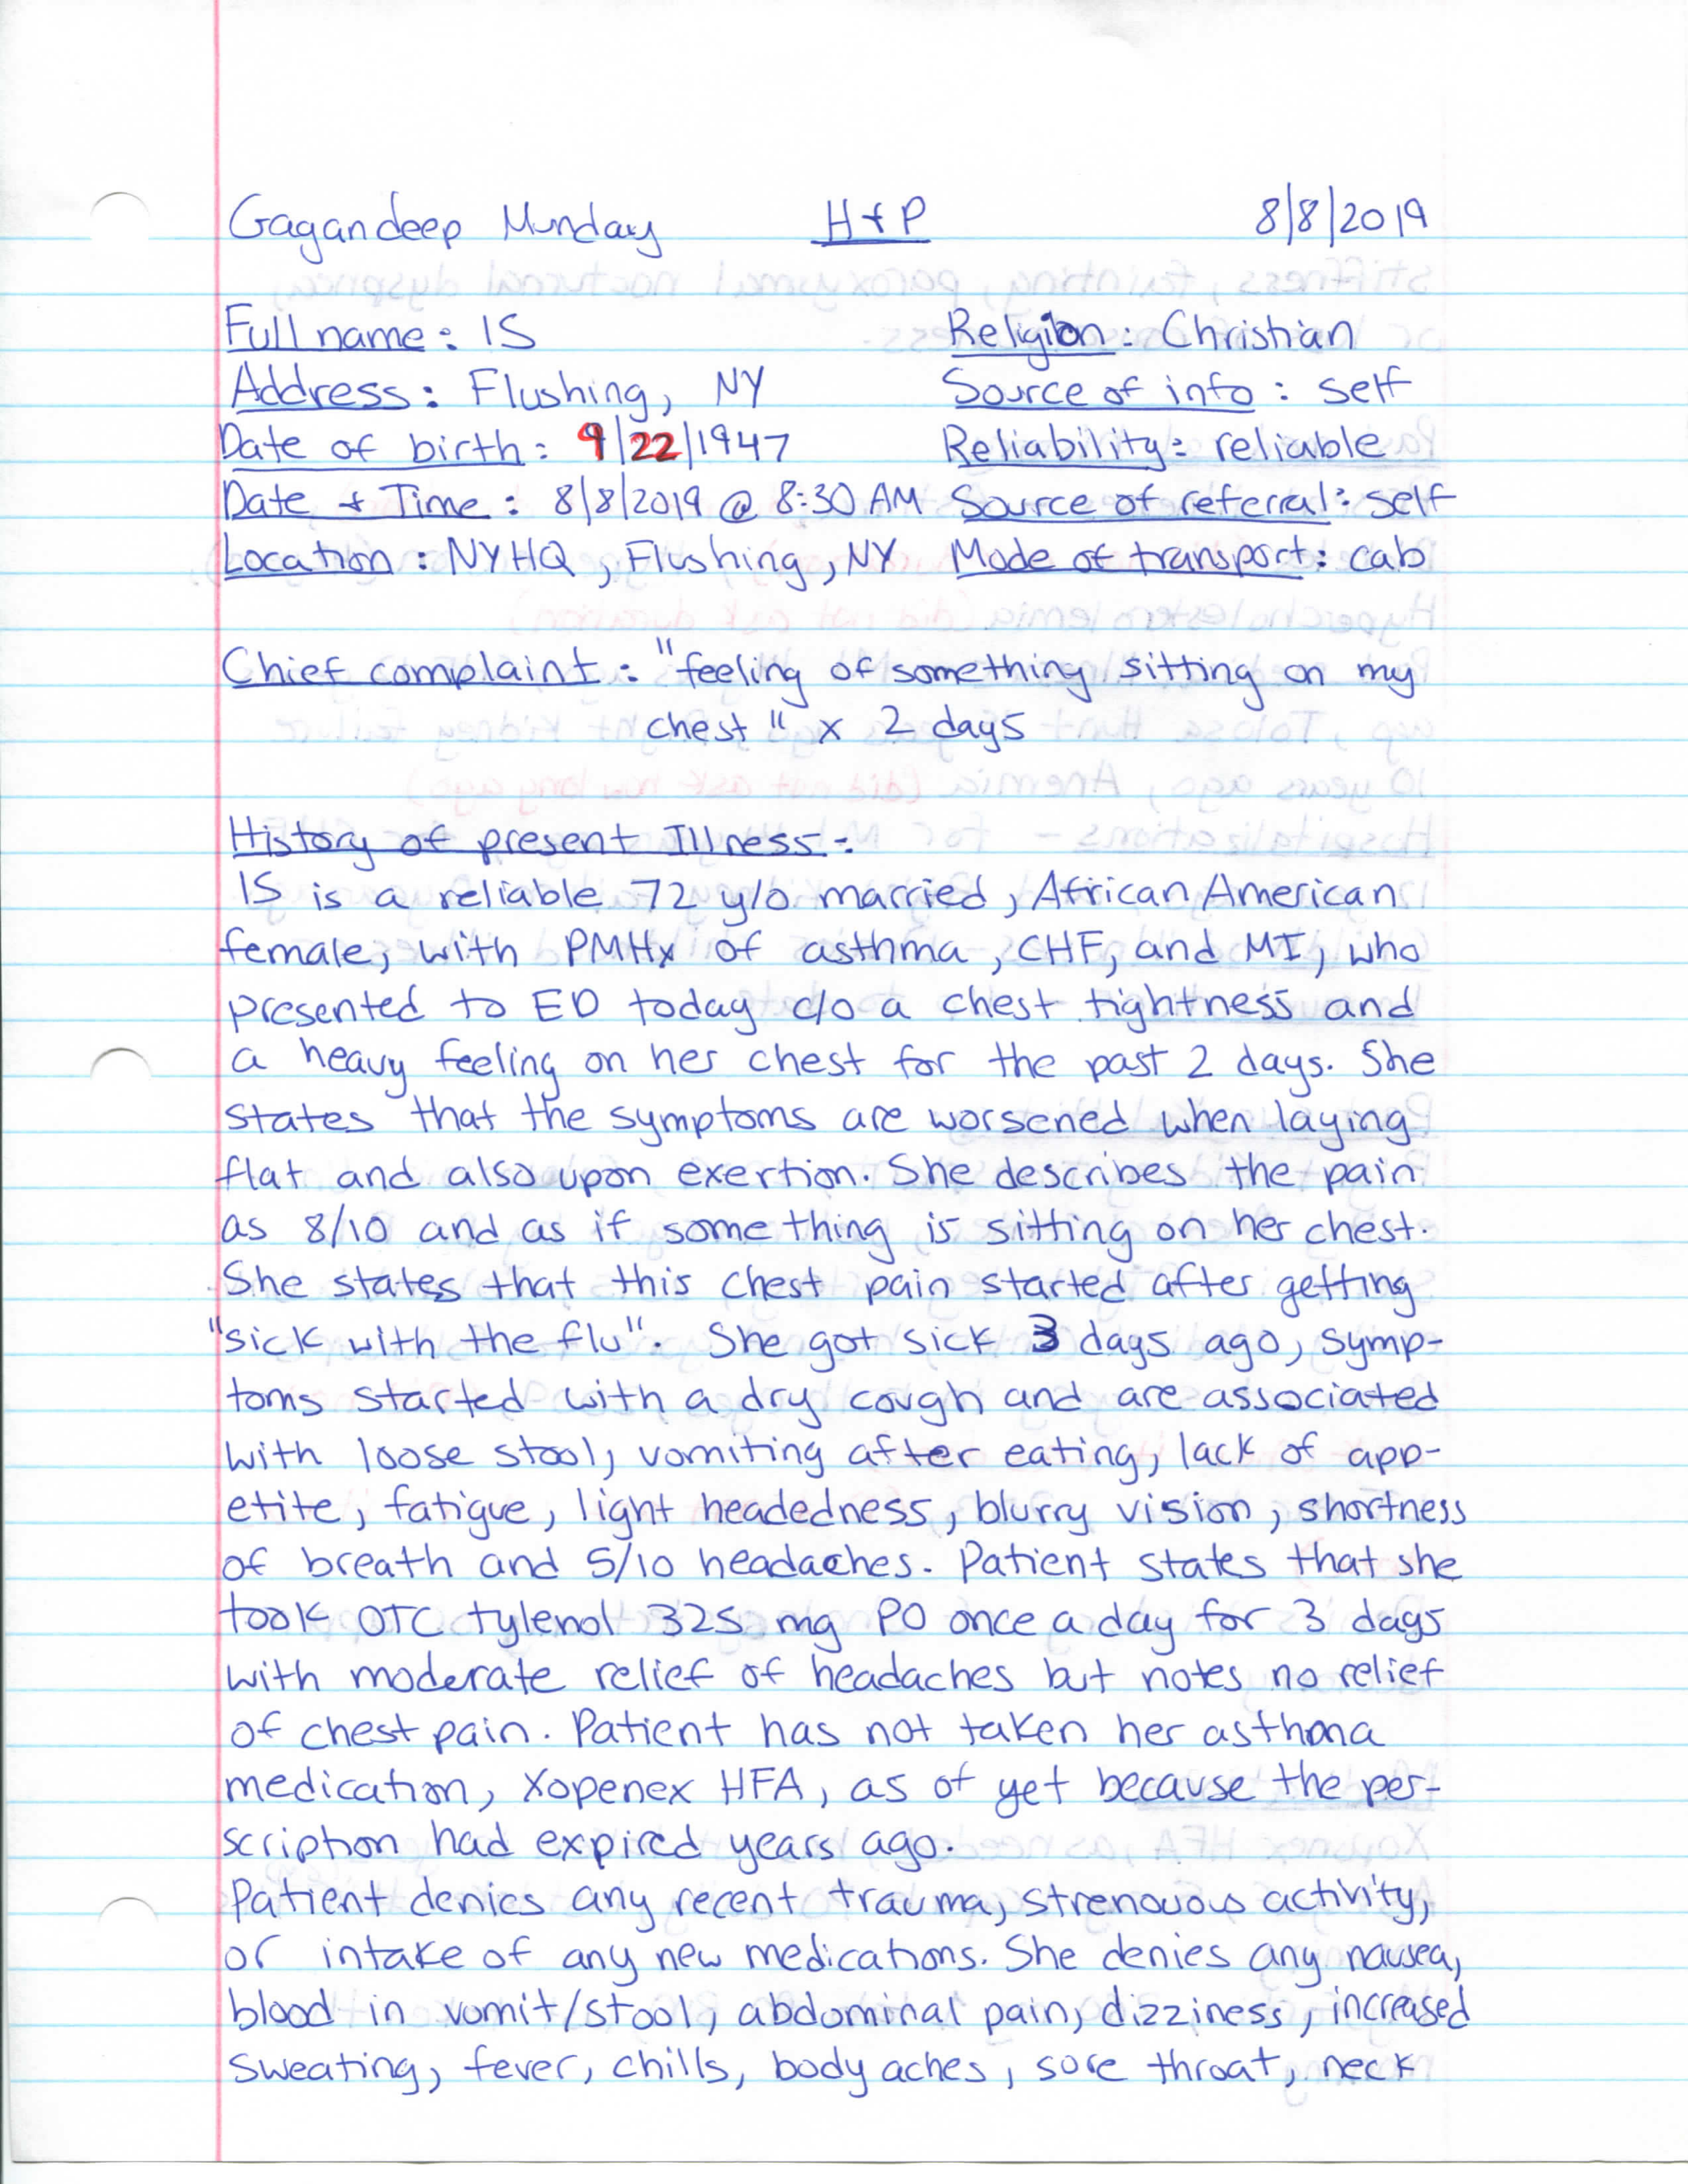 Gagandeep Munday H+P 8/8/2019
Full name: IS Religion: Christian
Address: Flushing, NY Source of info: self
Date of birth: 9/22/1947 Reliability: reliable
Date + Time: 8/8/2019 @ 8:30 AM Source of referral: self
Location: NYHQ, Flushing, NY Mode of transport: cab
Chief complaint: "feeling of something sitting on my
chest" x 2 days
History of present Illness:
IS is a reliable 72 y/o married, African American
female, with PMHx of asthma, CHF, and MI, who
presented to ED today c/o a chest tightness and
a heavy feeling on her chest for the past 2 days. She
states that the symptoms are worsened when laying
flat and also upon exertion. She describes the pain
as 8/10 and as if something is sitting on her chest.
She states that this chest pain started after getting
"sick with the flu". She got sick 3 days ago, symp-
toms started with a dry cough and are associated
with loose stool, vomiting after eating, lack of app-
etite, fatigue, light headedness, blurry vision, shortness
of breath and 5/10 headaches. Patient states that she
took OTC tylenol 325 mg PO once a day for 3 days
with moderate relief of headaches but notes no relief
of chest pain. Patient has not taken her asthma
medication, Xopenex HFA, as of yet because the per-
scription had expired years ago.
Patient denies any recent trauma, strenuous activity,
or intake of any new medications. She denies any nausea,
blood in vomit/stool, abdominal pain, dizziness, increased
sweating, fever, chills, body aches, sore throat, neck